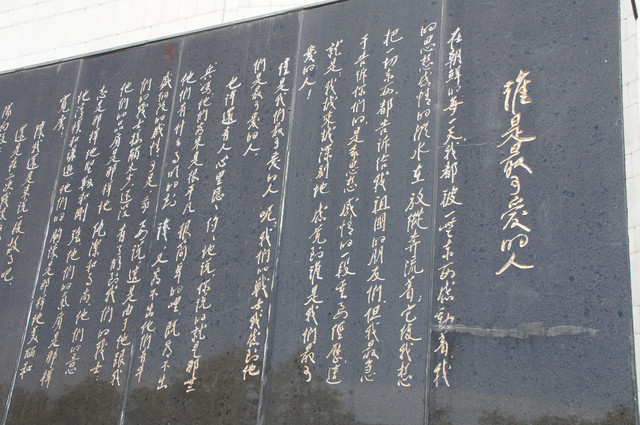 谁是最可爱的人
在朝鲜的每一天我都被一些东西感动着我
的思想感情的潮水在放纵奔流着它使我想
把一切东西都告诉给我祖国的朋友们但我最急
于告诉你们的是我思想感情的一段重要经历这
就是我越来越深刻地感觉到谁是我们最可
爱的人！
谁是我们最可爱的人呢我们的战士我感到他
们是最可爱的人
也许还有人心里隐隐约约地说你说的就是那些
兵吗他们看来是很平凡很简单的哩既看不出
他们有什么高明的知识又看不出他们有丰
盛细致的感情可是我要说这是由于他跟我
们的战士接触太少还没有了解我们的战士
他们的品质是那样的纯洁和高尚他们的意
志是那样的坚韧和刚强他们的气质是那样
的淳朴和谦逊他们的胸怀是那样的美丽和
宽广
让我还是来说一段故事吧
还是在二次战役的